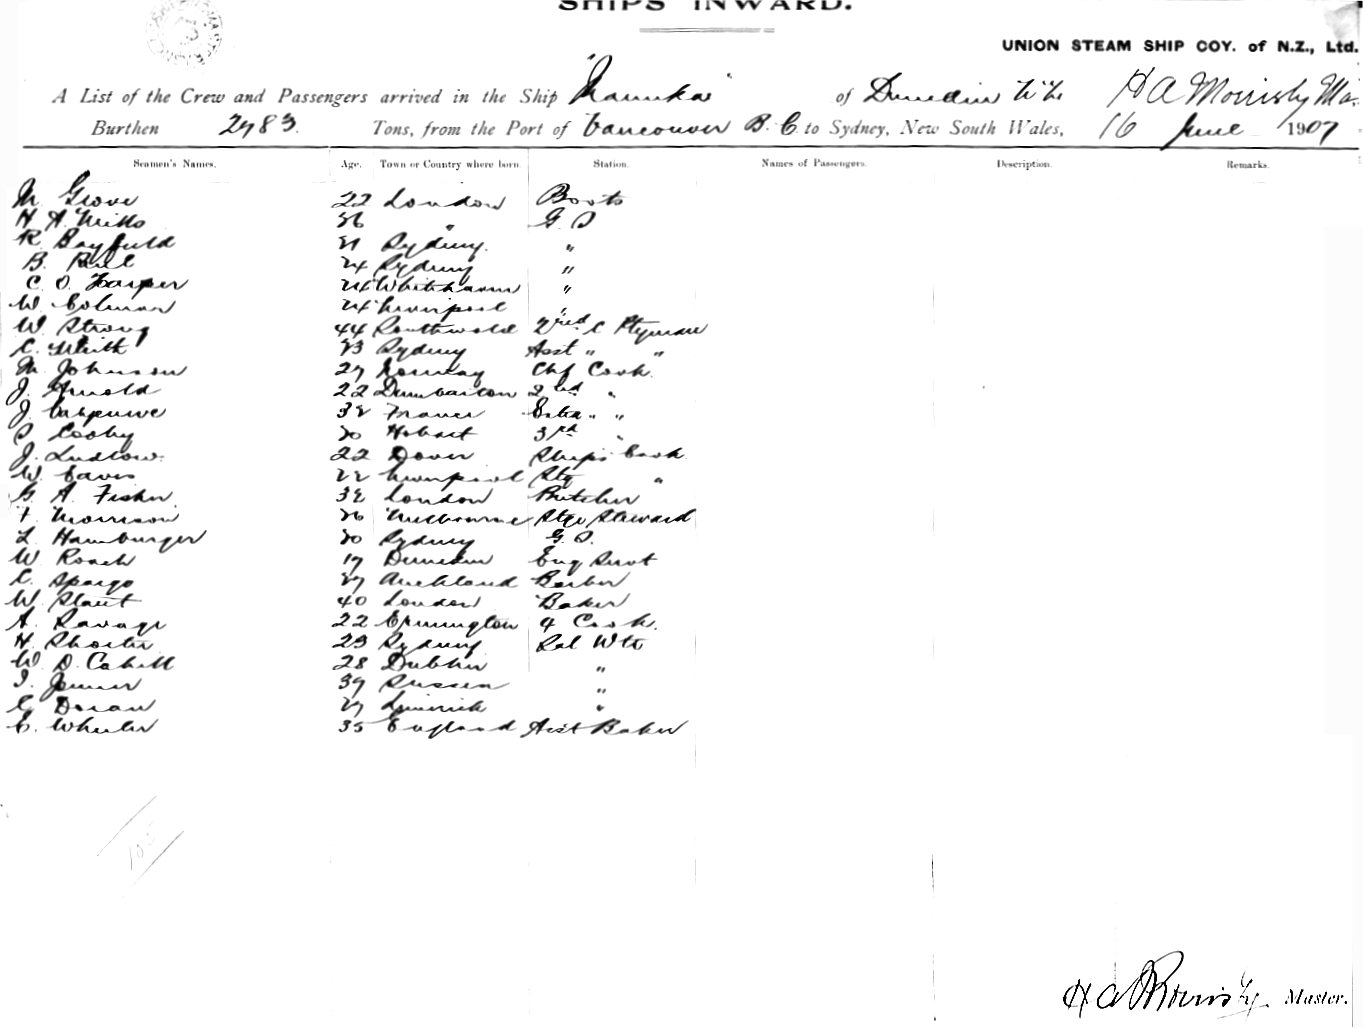 SHIPS INWARD.
UNION STEAM SHIP COY. of N.Z., Ltd.
A List of the Crew and Passengers arrived in the Ship "Manuka" of Dunedin H A Morrisby
Burthen 2783 Tons, from the Port of Vancouver B.C. to Sydney, New South Wales, 16 June 1907
Seamen's Names. Age. Town or Country where born Station. Names of Passengers. Description. Remarks.
M Grove 22 London Boots
H A Mills 36 " G S
R Bayfield Sydney "
B. 24 Sydney "
C. O. Harper 24 Whitehaven "
W Colman 24 Liverpool "
W Strong 44 Southwold 2nd C
C. Sydney Asst " "
M Johnson 27 Norway Chf Cook
J. Arnold 22 Dumbarton 2nd "
J. 32 France Extra " "
S Cosby 20 Hobart 3rd "
J. Ludlow 22 Dover Ships Cook
W Liverpool Stg "
G A. Fisher 32 London Butcher
F Morrison 26 Melbourne Stge Steward
L Hamburger 20 Sydney G. S.
W Roach 19 Dunedin Eng Servt
C. Spargo 27 Auckland Barber
W Stout 40 London Baker
A. Savage 22 Ermington 4 Cook.
H. Shorter 23 Sydney Sal Wtr
W D. Cahill 28 Dublin "
J. Joiner 39 Sussex "
Doran 27 Limerick "
E. Wheeler 35 England Asst Baker
H A Morrisby Master.